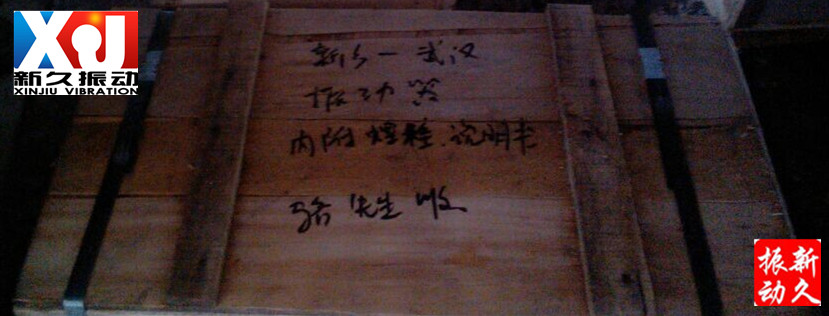 XJ
新久振动
XINJIU VIBRATION
新乡—武汉
振动器
内附 说明书
骆先生收
新久
振动